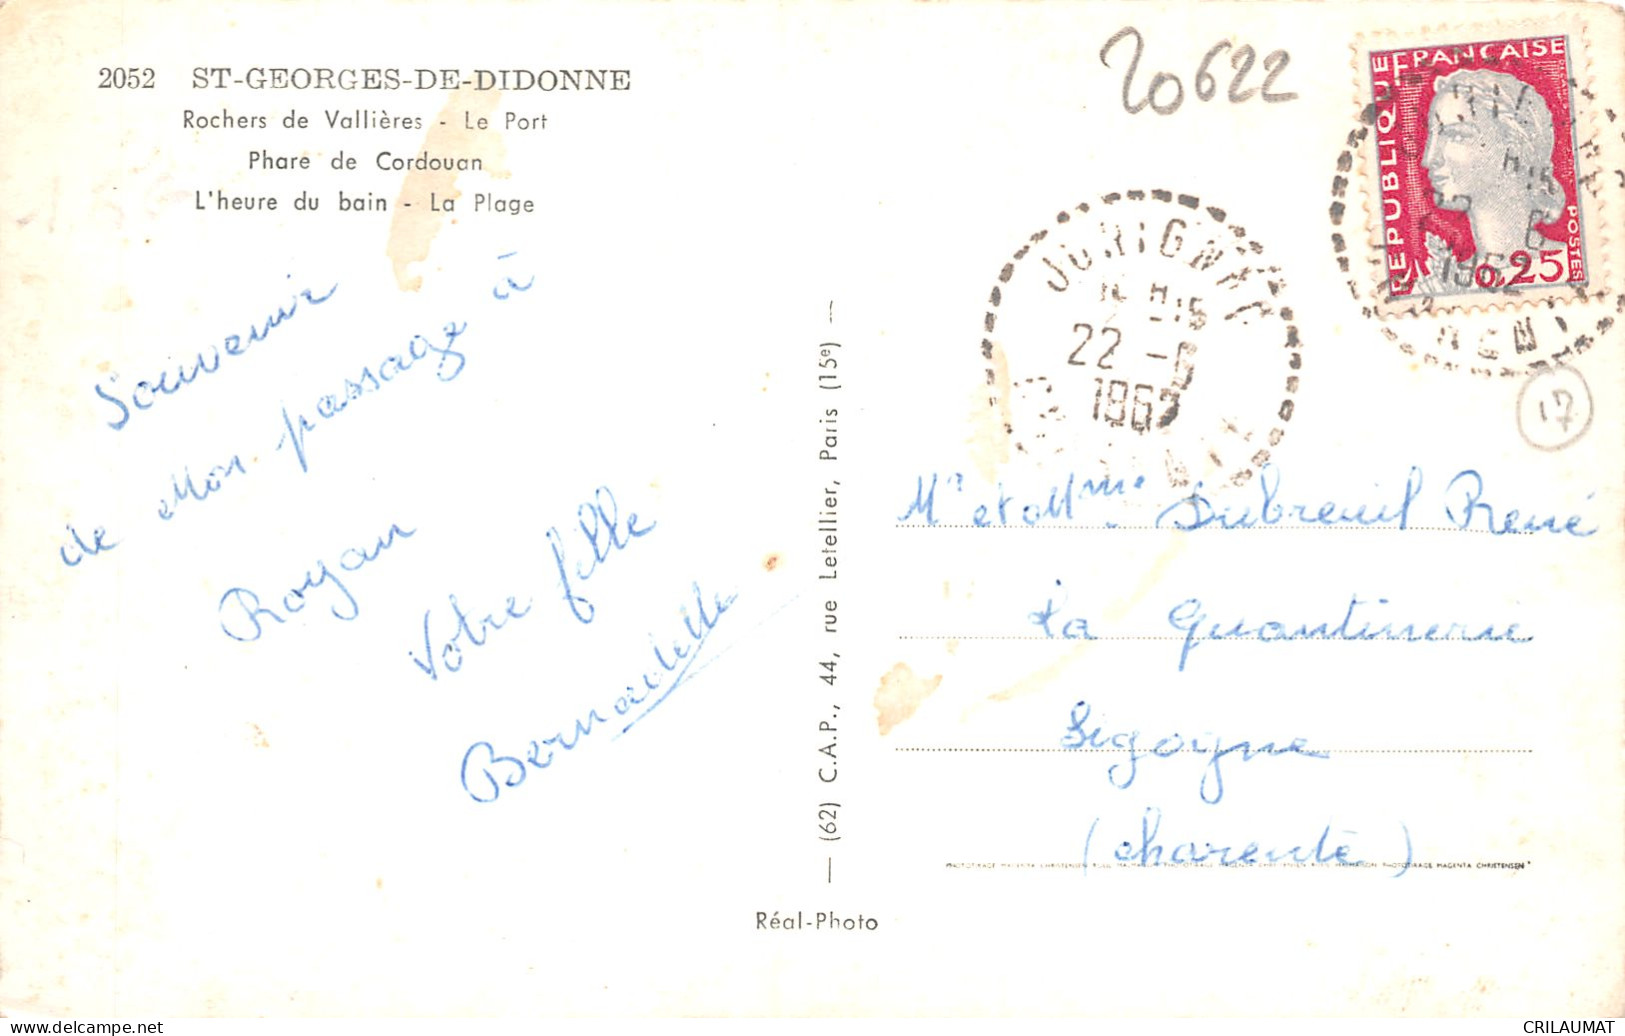 2052 ST-GEORGES-DE-DIDONNE
Rochers de Vallières - Le Port
Phare de Cordouan
L'heure du bain - La Plage
Souvenir
de Mon passage à
Royan
Votre fille
Bernadette
20622
REPUBLIQUE FRANÇAISE
POSTES
0,25
1962
JURIGNAC
22 -6
1962
17
(62) C.A.P., 44, rue Letellier, Paris (15e)
Mr et Mme Dubreuil René
La Quantinerie
Sigogne
(Charente)
Réal-Photo
CRILAUMAT